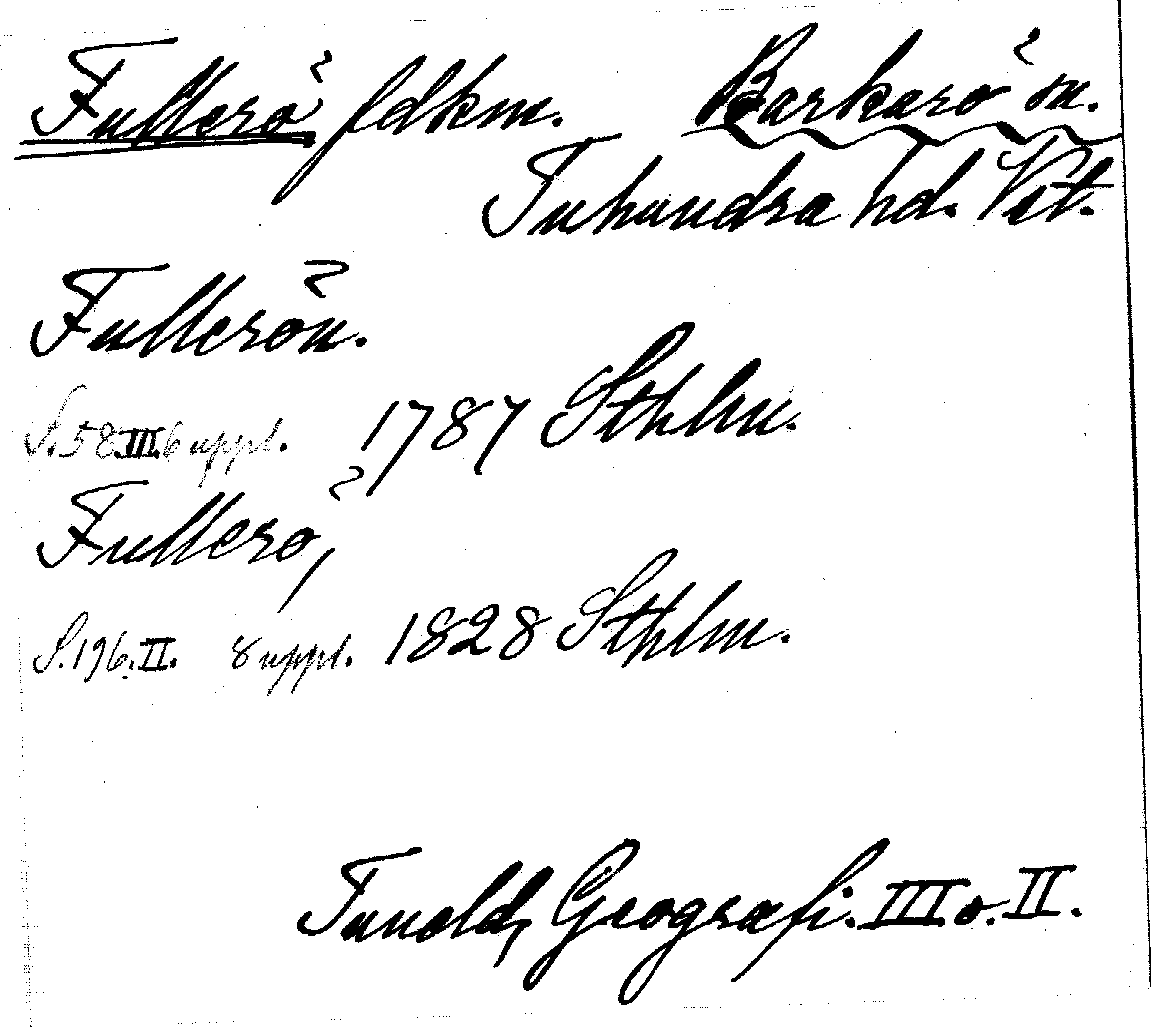 Fullerö fdkm. Barkarö sn.
Tuhundra hd. Vst.
Fullerön.
S. 58. III. 6 uppl. 1787 Sthlm.
Fullerö,
S. 196. II. 8 uppl. 1828 Sthlm.
Tuneld, Geografi. III o. II.